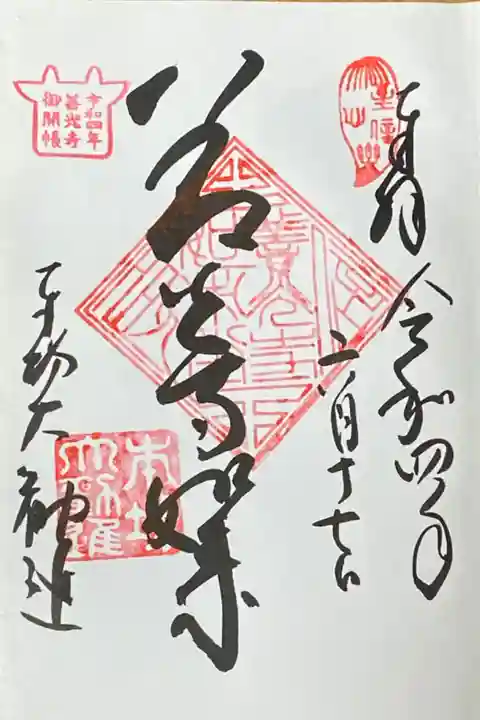 奉拝
令和四年
二月十七日
善光寺如来
令和四年
善光寺
御開帳
本坊大勧進